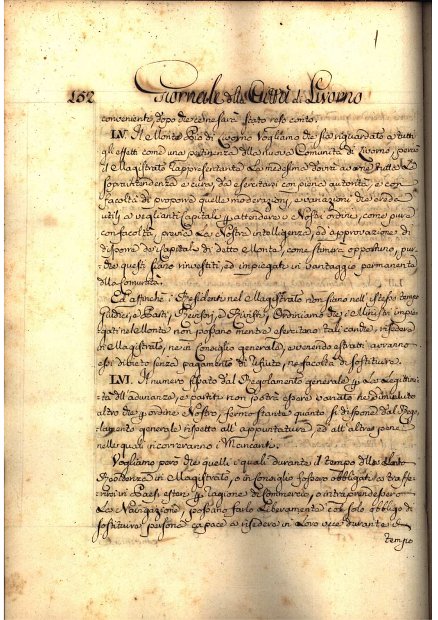 152 Giornale della Città di Livorno
conveniente, dopo che ce ne sarà stato reso conto.
LV. Il Monte Pio di Livorno Vogliamo che sia riguardato a tutti
gli effetti come una pertinenza della nuova Comunità di Livorno, però
il Magistrato rappresentante La medesima dovrà averne tutta La
Soprantendenza e cura, da esercitarsi con piena autorità, e con
facoltà di proporre quelle moderazioni, e variazioni che creda
utili a veglianti Capitale attendere i Nostri ordini, come pure
con facoltà, previa La Nostra intelligenza, ed approvazione di
disporre dei Capitali di detto Monte, come stimerà opportuno, pur-
chè questi siano rinvestiti, ed impiegati in vantaggio permanente
della Comunità.
Ed affinchè i Residenti nel Magistrato non siano nell' istesso tempo
Giudici, e Parti, Revisori, e Rivisti, Ordiniamo che i Ministri impie-
gati nel Monte non possano mentre esercitano tali cariche, risedere
in Magistrato, nè in Consiglio generale, e venendo estratti avranno
essi divieto senza pagamento di rifiuto, nè facoltà di sostituire.
LVI. Il numero fissato dal Regolamento generale per La Legittimi-
tà dell' adunanze, e partiti non potrà essere variato nè diminuito
altro che per ordine Nostro, fermo stante quanto si dispone dal Rego-
lamento generale rispetto all' appuntature, ed all' altre pene
nelle quali incorreranno i Mancanti.
Vogliamo però che quelli i quali durante il tempo della Loro
Residenza in Magistrato, o in Consiglio fossero obbligati a trasfe-
rirsi in Paesi esteri per cagione di Commercio, o intraprendessero
La Navigazione, possano farlo Liberamente col solo obbligo di
sostituire persona capace a risedere in Loro vece durante il
tempo